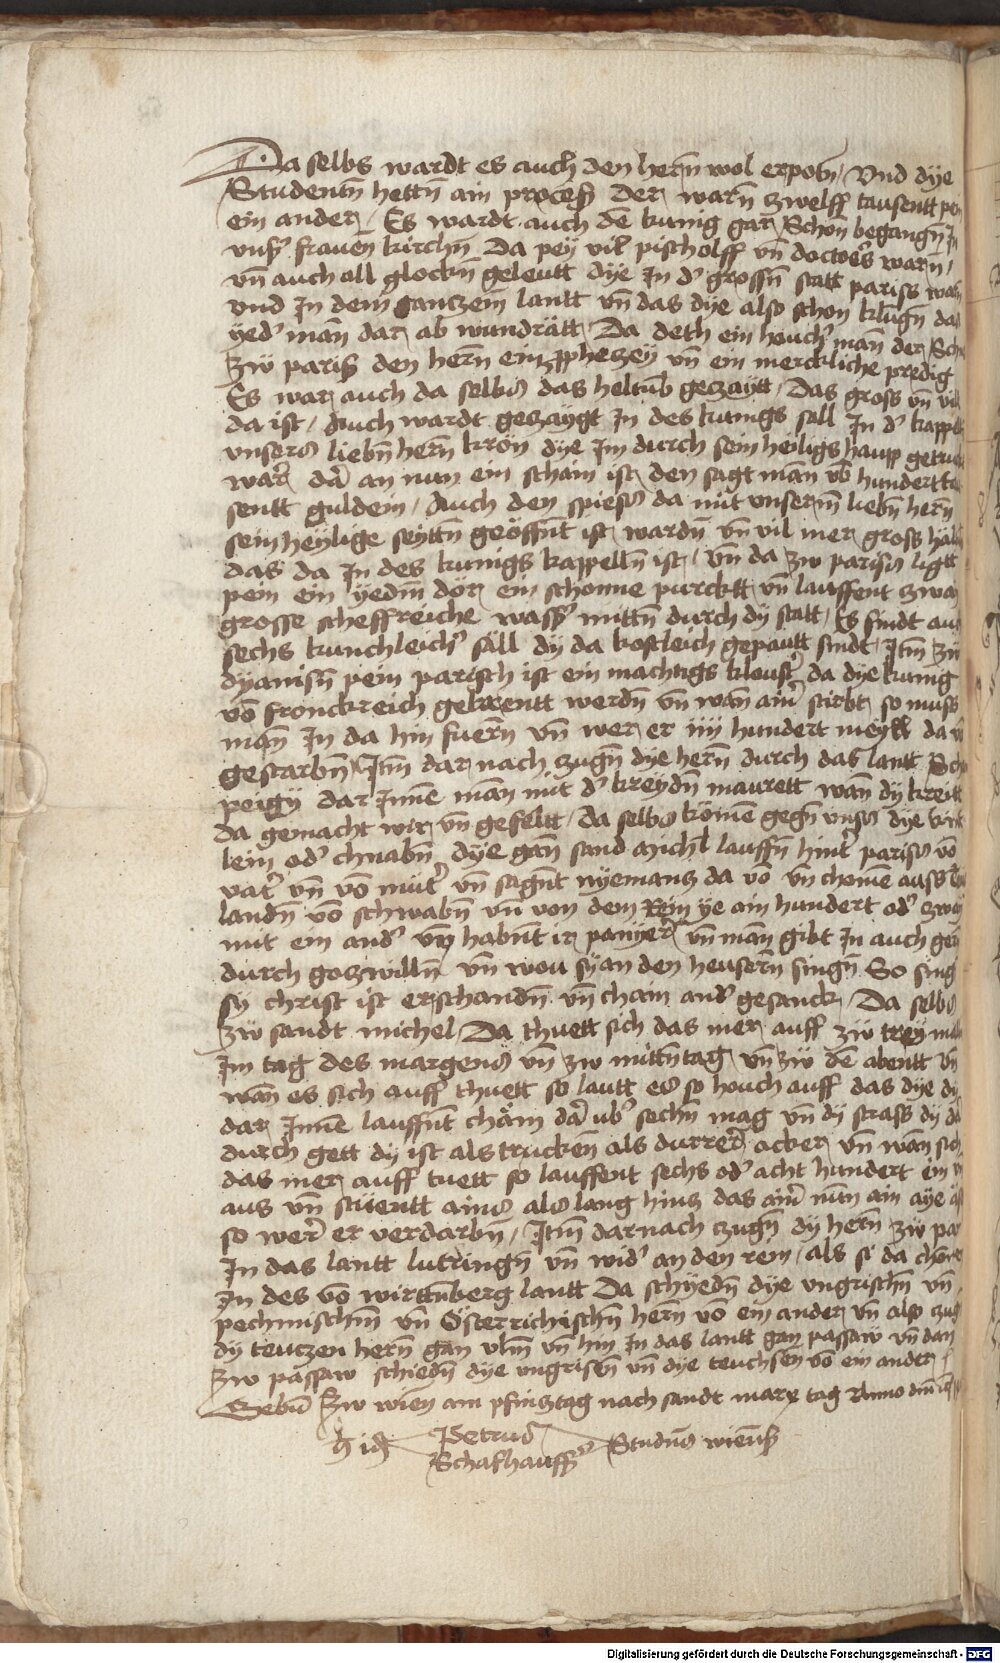 Da selbs wardt es auch den hern̄ wol erpotn̄ / Vnd dye
Studentn̄ hettn̄ ain proceß der warn̄ zwelff tausentt pey
ein ander / Es wardt auch dē kunig gar Schon begangn̄ In
vnsr̄ frauen kirchn̄ Da pey vil pischolff vn̄ doctoēs warn̄ /
vn̄ auch all glockn̄ geleutt dye In dˀ grossn̄ statt pariss warn̄
vnd In dem gantzem lantt vn̄ das dye also schon klūgn̄ das
yedˀ man dar ab wundrätt / Da deth ein houchˀ man der Schul
Zw pariß den hern̄ em pphezey vn̄ ein merckliche predig
Es war auch da selbs das heltūb gezaytt / Das gross vn̄ vil
da ist / Auch wardt gezaygt In des kunigs sall In dˀ kappell
vnsers liebn̄ hern̄ kron dye Im durch sein heiligs haup getruckt
warˀ dāˀ an nun ein scham ist den sagt man vb̄ hundertt tau
sentt guldein / Auch den spiess da mit vnserm̄ liebn̄ hern̄
sein heylige seyttn̄ geöffn̄t ist wardn̄ vn̄ vil mer gross hailtū
das da In des kunigs kappelln̄ ist / Vn̄ da zw pariss ligtt
pein ein yedm̄ dor ein schonne purcktt vn̄ lauffent zway
grosse scheffreiche wassˀ mittn̄ durch dy statt / Es sindt auch
sechs kunchleichˀ säll dy da kostleich gepautt sindt / Itm̄ zw
dyanisn̄ pein parisch ist ein machtigs kloustˀ da dye kunig
vō fronckreich gekrentt werdn̄ vn̄ wan ainˀ stirbt so muss
man In da hin fuern̄ vn̄ wer er iiij hundert meyll da vō
gestarbn̄ / Itm̄ dar nach zugn̄ dye hern̄ durch das lantt Scha
peigy dar Inne man mit dˀ kreydn̄ maurett wan dy kreid
da gemacht wir vn̄ gefeltt / da selbs komē gegn̄ vnss dye kind
lein odˀ chnabn̄ dye gan sand michl lauffn̄ hintˀ pariss vō
vatˀ vn̄ vō mutˀ vn̄ sagn̄t nyemanz da vō vn̄ chomē auss
landn̄ vō schwabn̄ vn̄ von dem Rein ye ain hundert odˀ zway
mit ein andˀ vn̄ habn̄t ir panyer vn̄ man gibt In auch gern̄
durch goszwilln̄ vn̄ wou sy an den heusern̄ singn̄ So singn̄
sy christ ist erschandn̄ vn̄ chain andˀ gesanck / Da selbs
zw sandt michel Da thuett sich das mer auff zw trey mal
Im tag des margens vn̄ zw mittn̄tag vn̄ zw dē abentt vn̄
wan es sich auff thuett so lautt es so houch auff das dye dy
dar Inne lauffn̄t chain dāˀ vbˀ sechn̄ mag vn̄ dy strass dy da
durch gett dy ist als trucken als durrer acker vn̄ wan sich
das mer auff tuett so lauffent sechs odˀ acht hundert ein vn̄
aus vn̄ stuentt ains als lang hins das ainˀ nun ain aye
so werˀ er verdarbn̄ / Itm̄ dar nach zugn̄ dy hern̄ zw par
In das lantt lutringn̄ vn̄ widˀ an den rein / als si da chomē
In des vō wirttnberg lantt Da schyedn̄ dye vngrischn̄ vn̄
pechmischn̄ vn̄ Österrichischn̄ hern̄ vō ein ander vn̄ also zugn̄
dy teutzen hern̄ gan vlm̄ vn̄ hin In das lantt gan passaw vn̄ dan
Zw passaw schiedn̄ dye vngrisēn vn̄ dye teuchsen vō ein ander
Gebn̄ Zw wien am pfinztag nach sandt marx tag Anno dm̄
Petrus
Schafhaussˀ
Studn̄s wienn̄ß
Digitalisierung gefördert durch die Deutsche Forschungsgemeinschaft - DFG